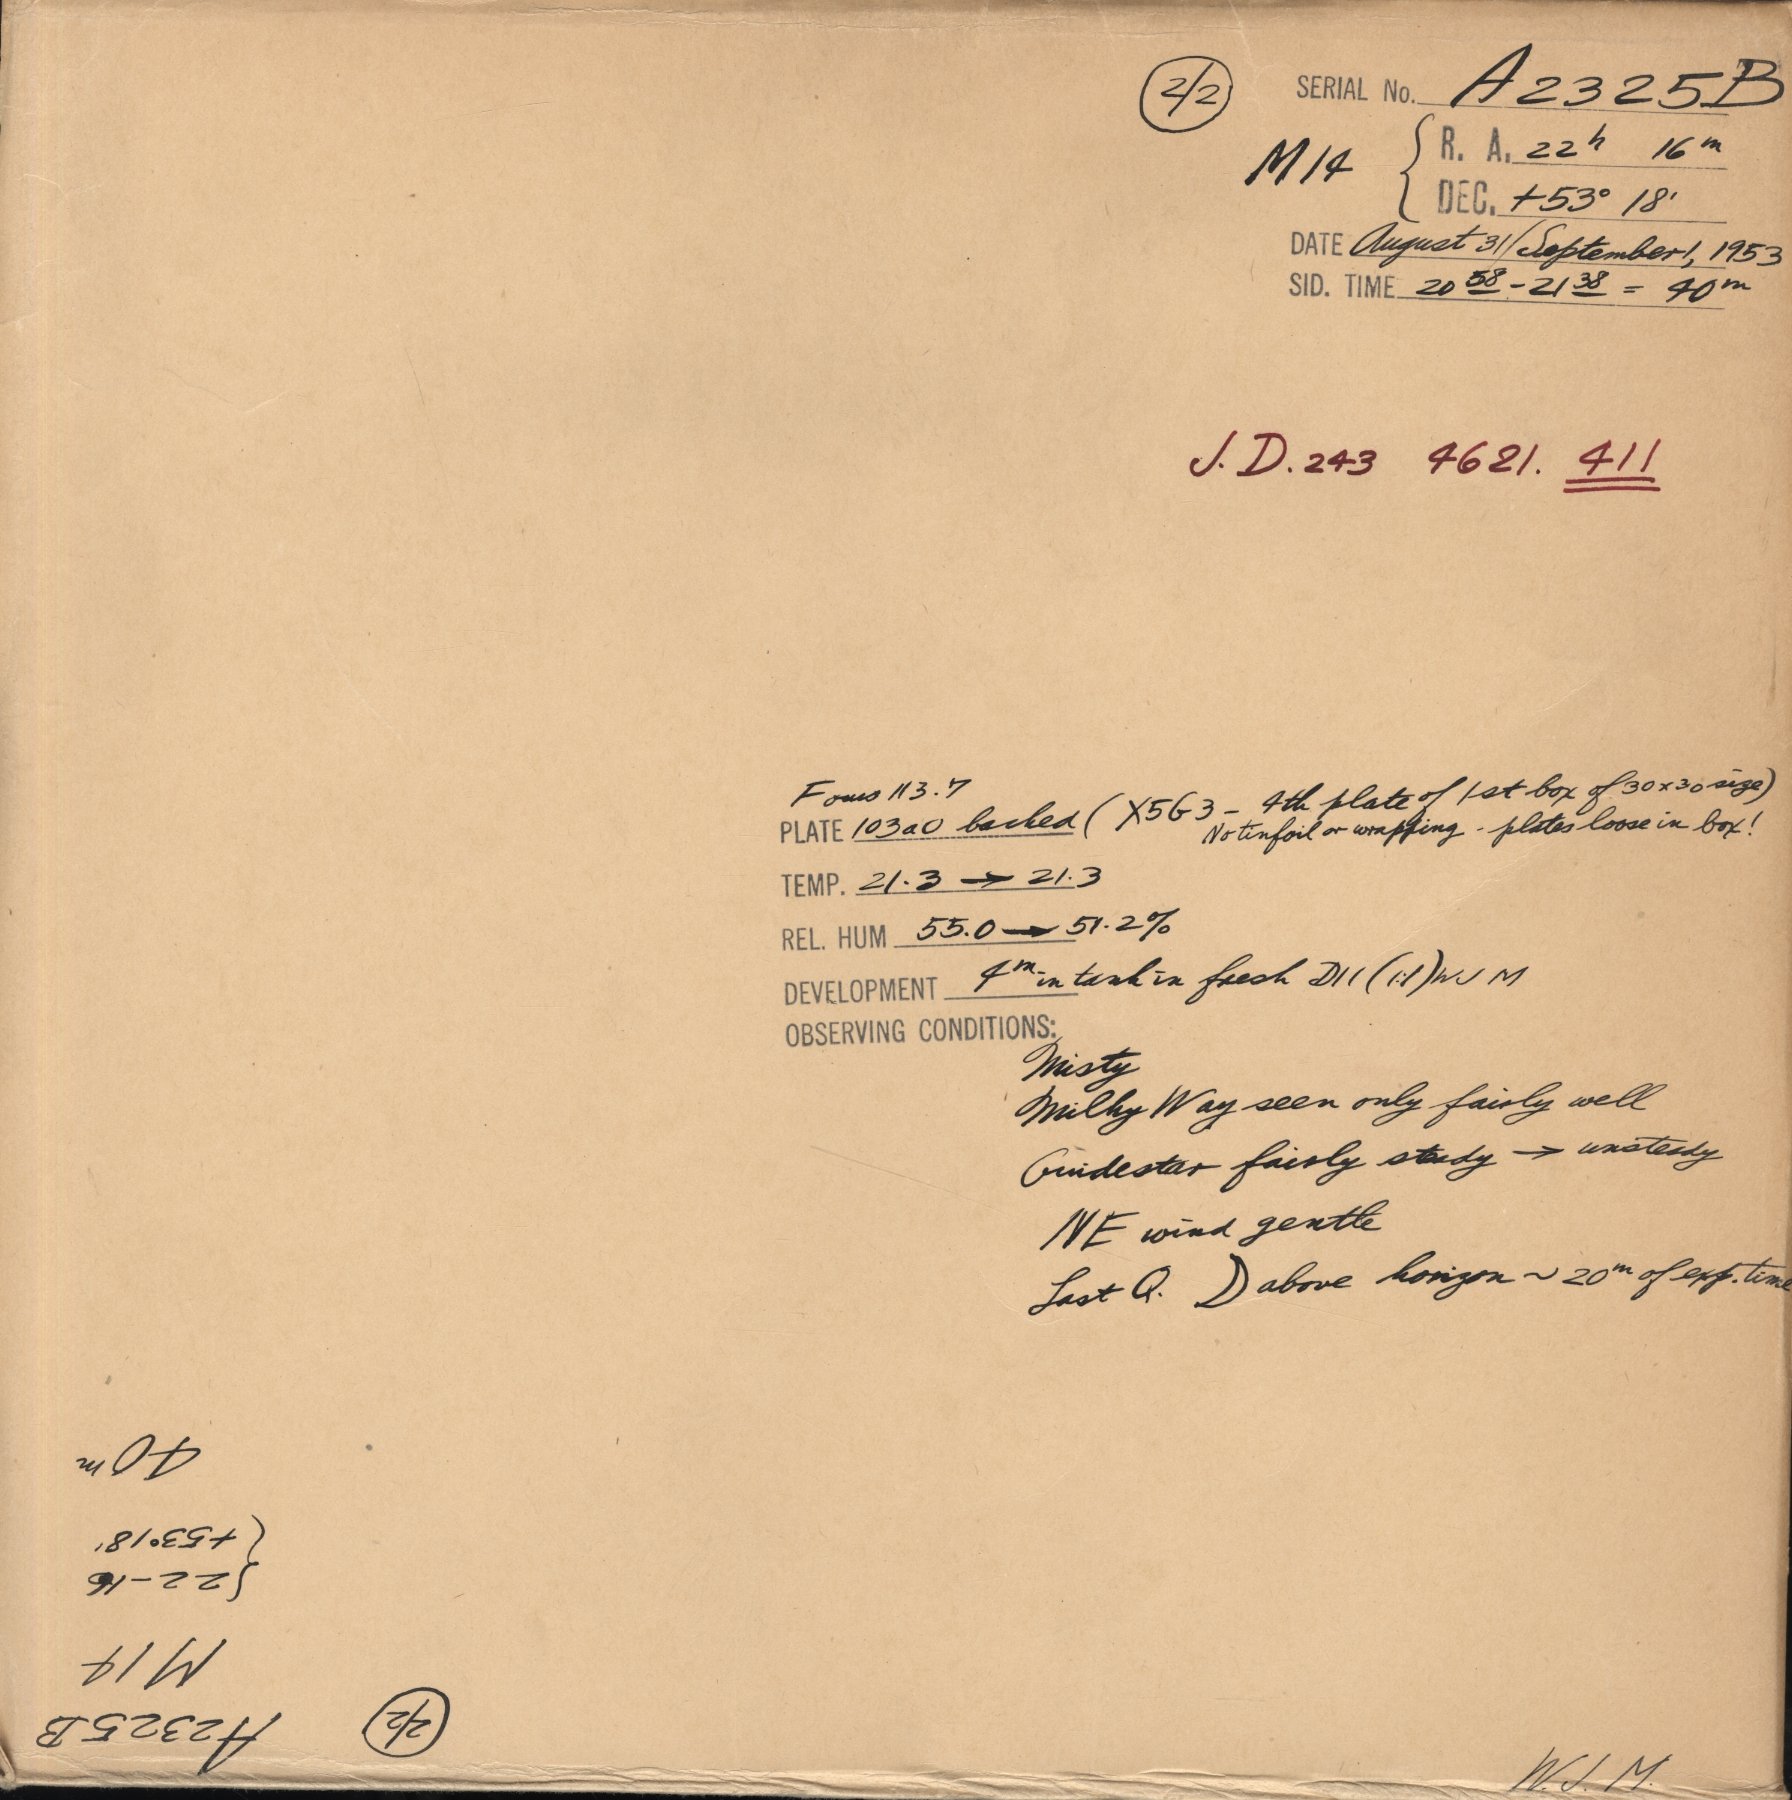 2/2
SERIAL No. A2325B
M14
R. A. 22h 16m
DEC. +53° 18'
DATE August 31/September 1, 1953
SID. TIME 20 58 - 21 38 = 40m
J.D. 243 4621. 411
Focus 113.7
PLATE 103aO backed (X5G3 - 4th plate of 1st box of 30x30 size)
No tinfoil or wrapping - plates loose in box!
TEMP. 21.3 → 21.3
REL. HUM 55.0 → 51.2%
DEVELOPMENT 4m in tank in fresh D11 (1:1) WJM
OBSERVING CONDITIONS:
Misty
Milky Way seen only fairly well
Guidestar fairly steady → unsteady
NE wind gentle
Last Q. D above horizon ~ 20m of exp. time
W.J.M.
2/2
A2325B
M14
{22-16
{+53°18'
40m